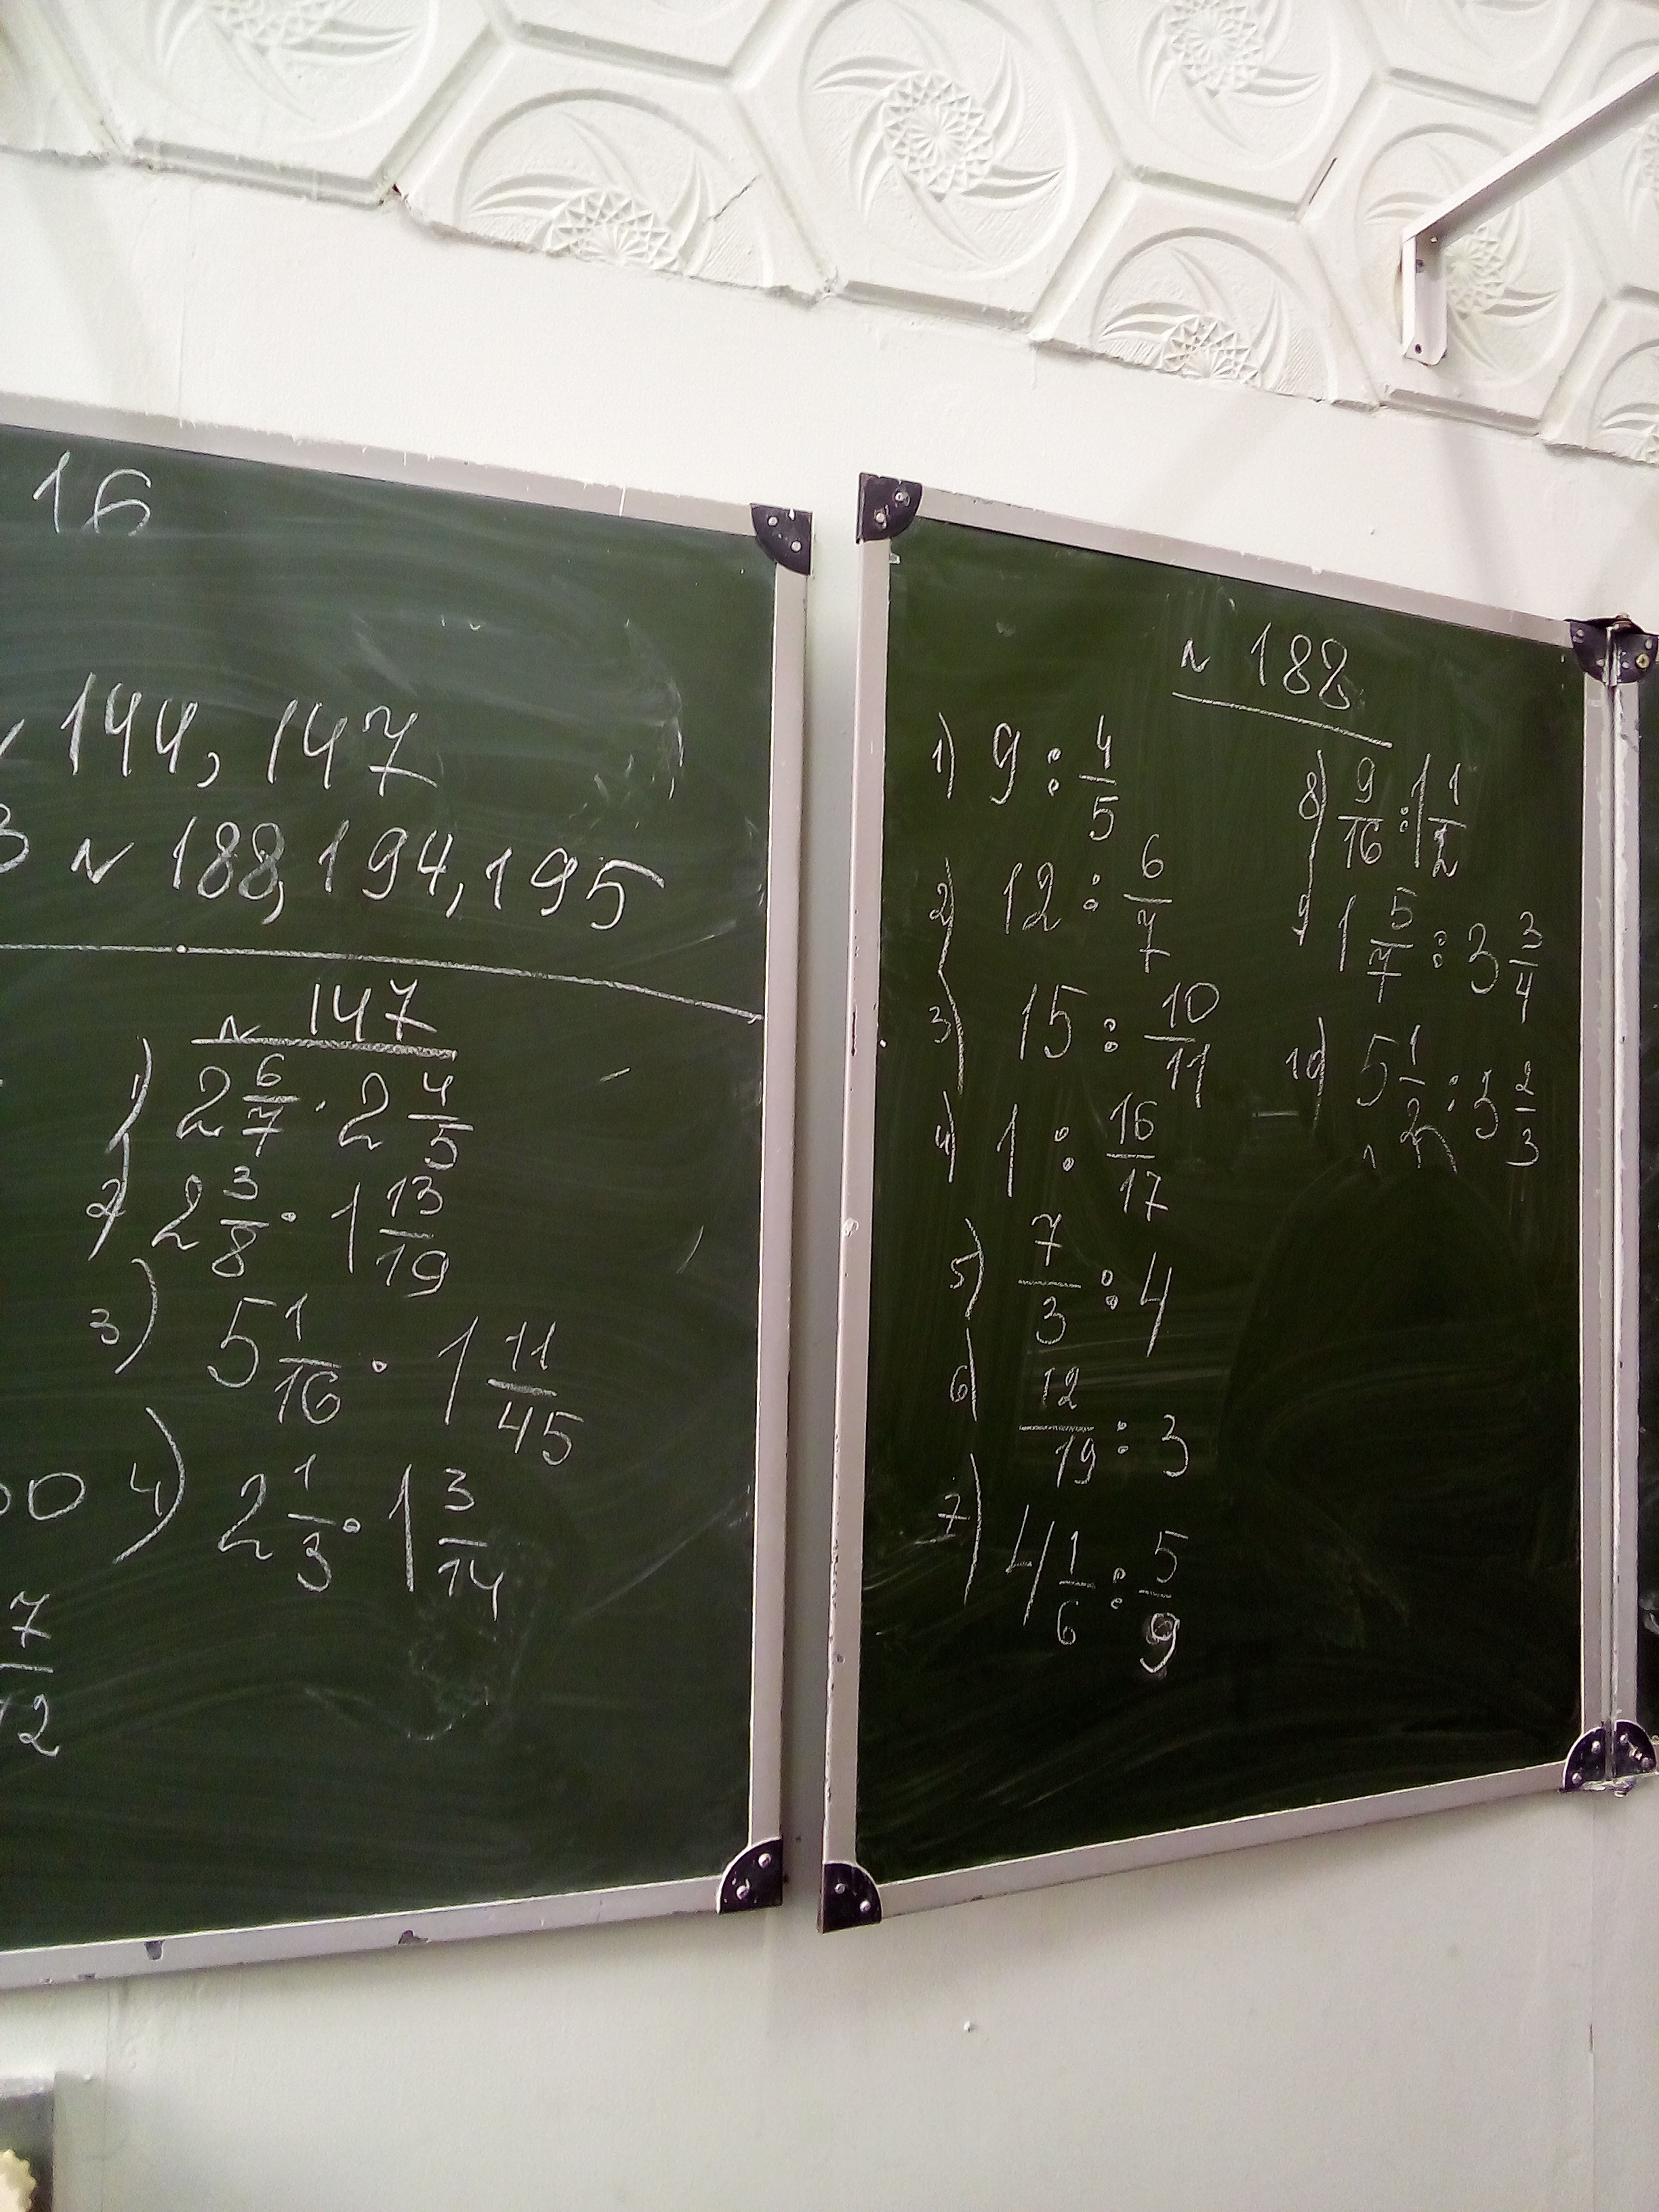 16
144, 147
3 № 188, 194, 195
№ 147
1) 2 6/7 · 2 4/5
2) 2 3/8 · 1 13/19
3) 5 1/16 · 1 11/45
4) 2 1/3 · 1 3/14
7/12
№ 188
1) 9 : 4/5
2) 12 : 6/7
3) 15 : 10/11
4) 1 : 16/17
5) 7/3 : 4
6) 12/19 : 3
7) 4 1/6 : 5/9
8) 9/16 : 1 1/2
9 1 5/7 : 3 3/4
10) 5 1/2 : 3 2/3